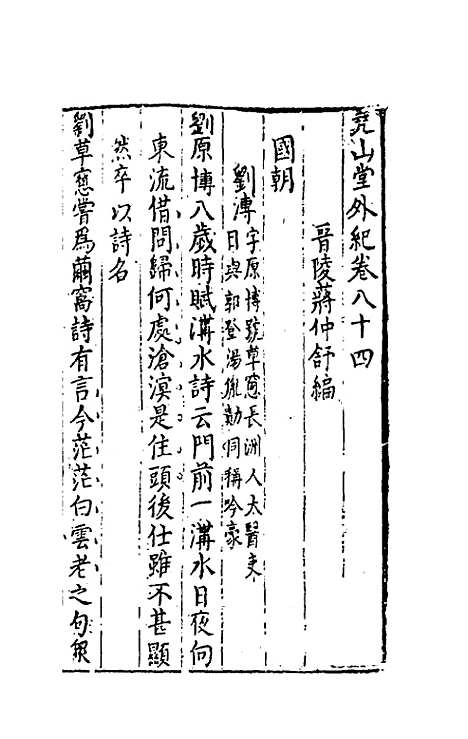 堯山堂外紀卷八十四
晉陵蔣仲舒編
國朝
劉溥字原博號草窓長洲人太醫吏
日與郭登湯胤勣同稱吟豪
劉原博八歲時賦溝水詩云門前一溝水日夜向
東流借問歸何處滄溟是住頭後仕雖不甚顯
然卒以詩名
劉草窓嘗為繭窩詩有言今茫茫白雲老之句報